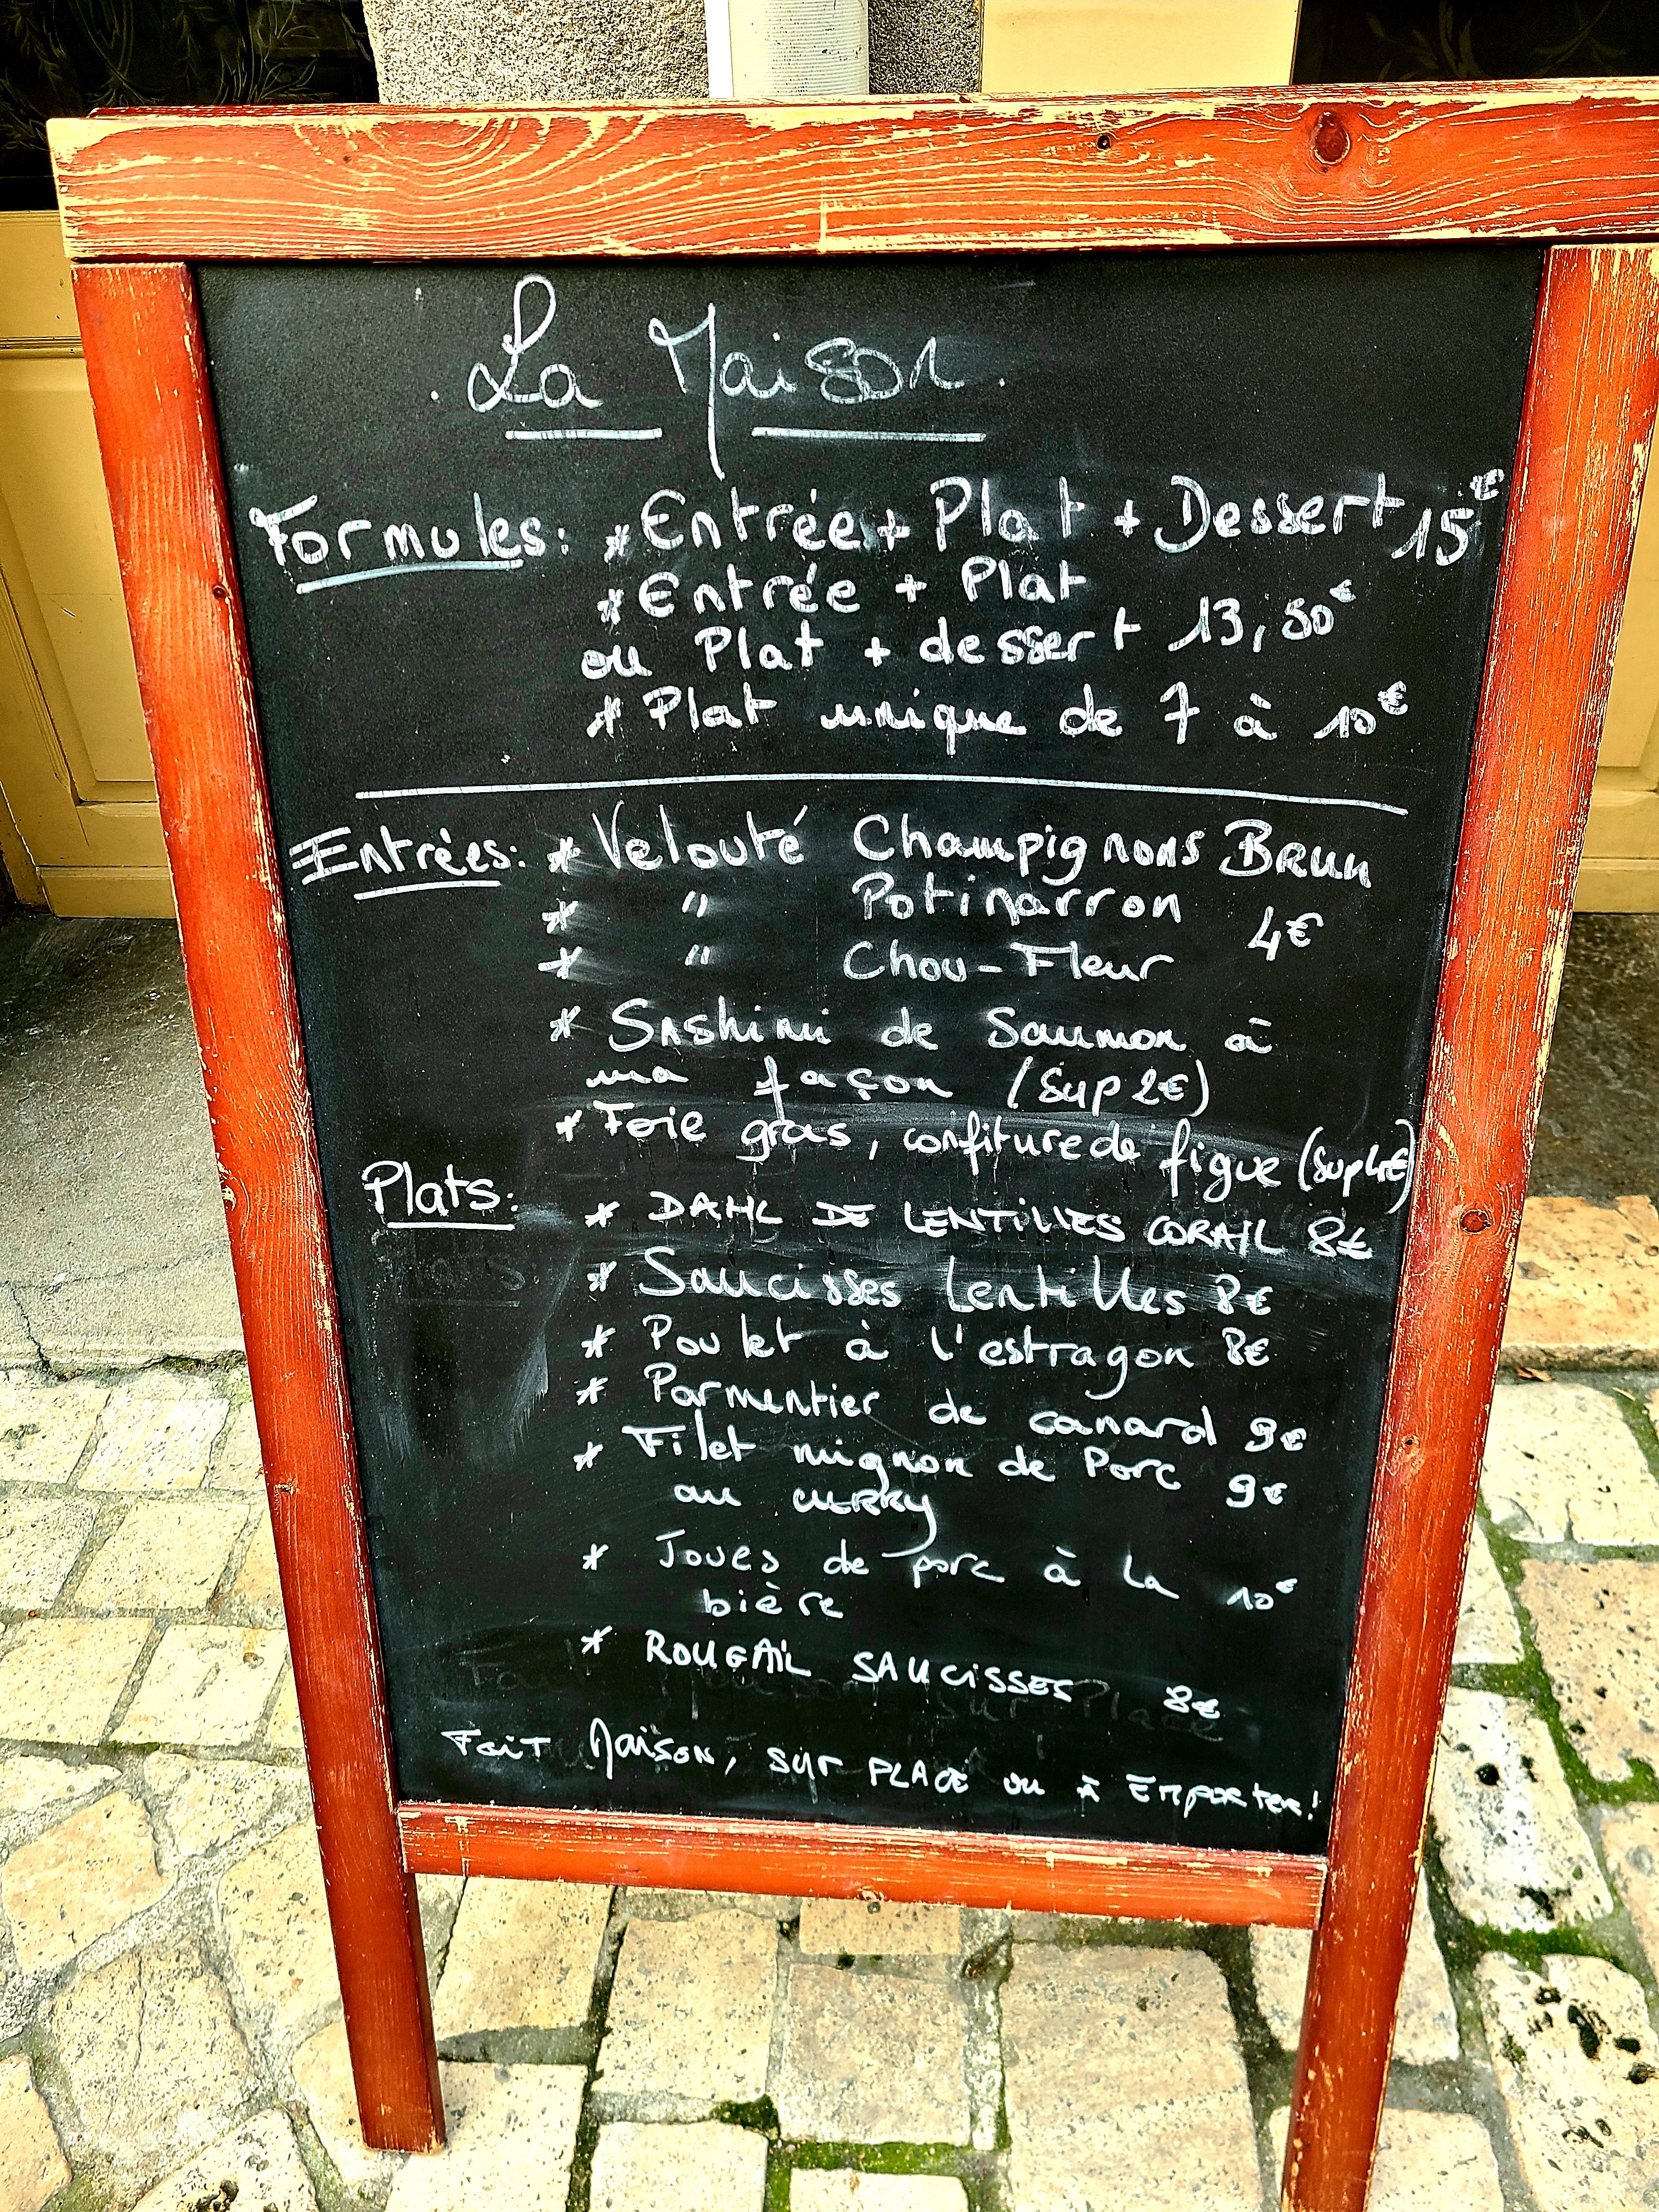 . La Maison .
Formules: * Entrée + Plat + Dessert 15€
* Entrée + Plat
ou Plat + dessert 13,50€
* Plat unique de 7 à 10€
Entrées: * Velouté Champignons Brun
* " Potimarron 4€
* " Chou-Fleur
* Sashimi de Saumon à
ma façon (Sup 2€)
* Foie gras, confiture de figue (Sup 4€)
Plats: * DAHL DE LENTILLES CORAIL 8€
* Saucisses lentilles 8€
* Poulet à l'estragon 8€
* Parmentier de canard 9€
* Filet mignon de Porc 9€
au CURRY
* Joues de porc à la 10€
bière
* ROUGAIL SAUCISSES 8€
Fait Maison, sur PLACE ou à Emporter!